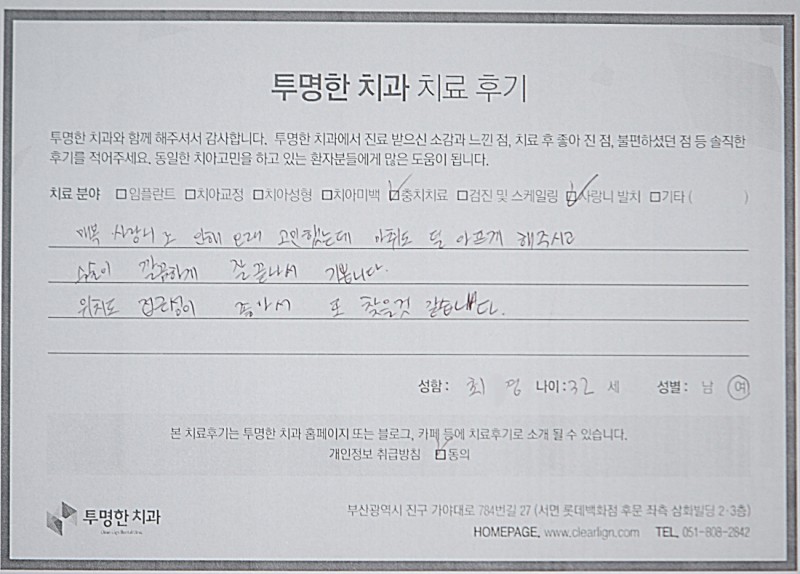 투명한 치과 치료 후기
투명한 치과와 함께 해주셔서 감사합니다. 투명한 치과에서 진료 받으신 소감과 느낀 점, 치료 후 좋아 진 점, 불편하셨던 점 등 솔직한
후기를 적어주세요. 동일한 치아고민을 하고 있는 환자분들에게 많은 도움이 됩니다.
치료 분야 □임플란트 □치아교정 □치아성형 □치아미백 ☑충치치료 □검진 및 스케일링 ☑사랑니 발치 □기타 ( )
매복 사랑니 로 인해 오래 고민했는데 마취도 덜 아프게 해주시고
깔끔하게 잘 끝나서 기쁩니다.
위치도 접근성이 좋아서 또 찾을것 같습니다.
성함: 최 나이: 32 세 성별: 남 여
본 치료후기는 투명한 치과 홈페이지 또는 블로그, 카페 등에 치료후기로 소개 될 수 있습니다.
개인정보 취급방침 ☑동의
투명한 치과
부산광역시 진구 가야대로 784번길 27 (서면 롯데백화점 후문 좌측 삼화빌딩 2·3층)
HOMEPAGE. www.clearlign.com TEL. 051-808-2842